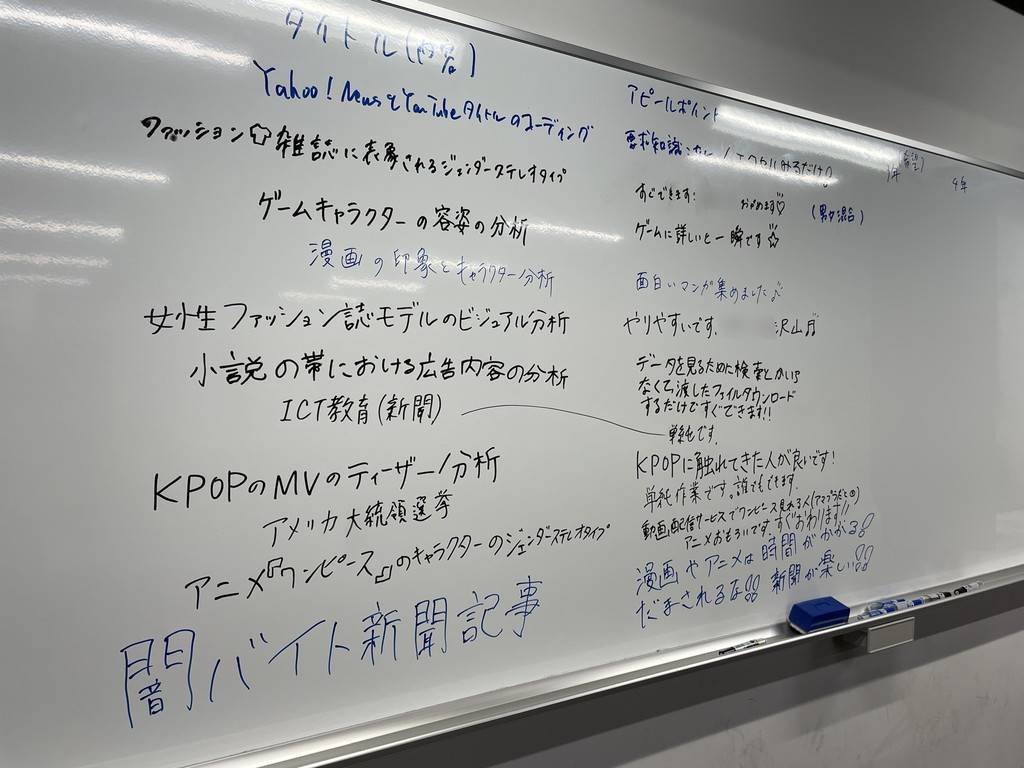 タイトル(内容)
Yahoo! NewsとYouTubeタイトルのコーディング
ファッション雑誌に表象されるジェンダーステレオタイプ
ゲームキャラクターの容姿の分析
漫画の印象とキャラクター分析
女性ファッション誌モデルのビジュアル分析
小説の帯における広告内容の分析
ICT教育(新聞)
KPOPのMVのティーザー分析
アメリカ大統領選挙
アニメ『ワンピース』のキャラクターのジェンダーステレオタイプ
闇バイト新聞記事
アピールポイント
要求知識 みるだけ!
すぐできます! おすすめます♡ (男女混合)
ゲームに詳しいと一瞬です☆
面白いマンガ集めました♪
やりやすいです. 沢山♬
データを見るために検索とかいら
なくて渡したファイルダウンロード
するだけですぐできます!!
単純です.
KPOPに触れてきた人が良いです!
単純作業です。誰でもできます.
動画配信サービスでワンピース見れる人(アマプラだと◎)
アニメおもろいです.すぐおわります!!
漫画やアニメは時間がかかる!!
だまされるな!! 新聞が楽しい!!
3年
4年